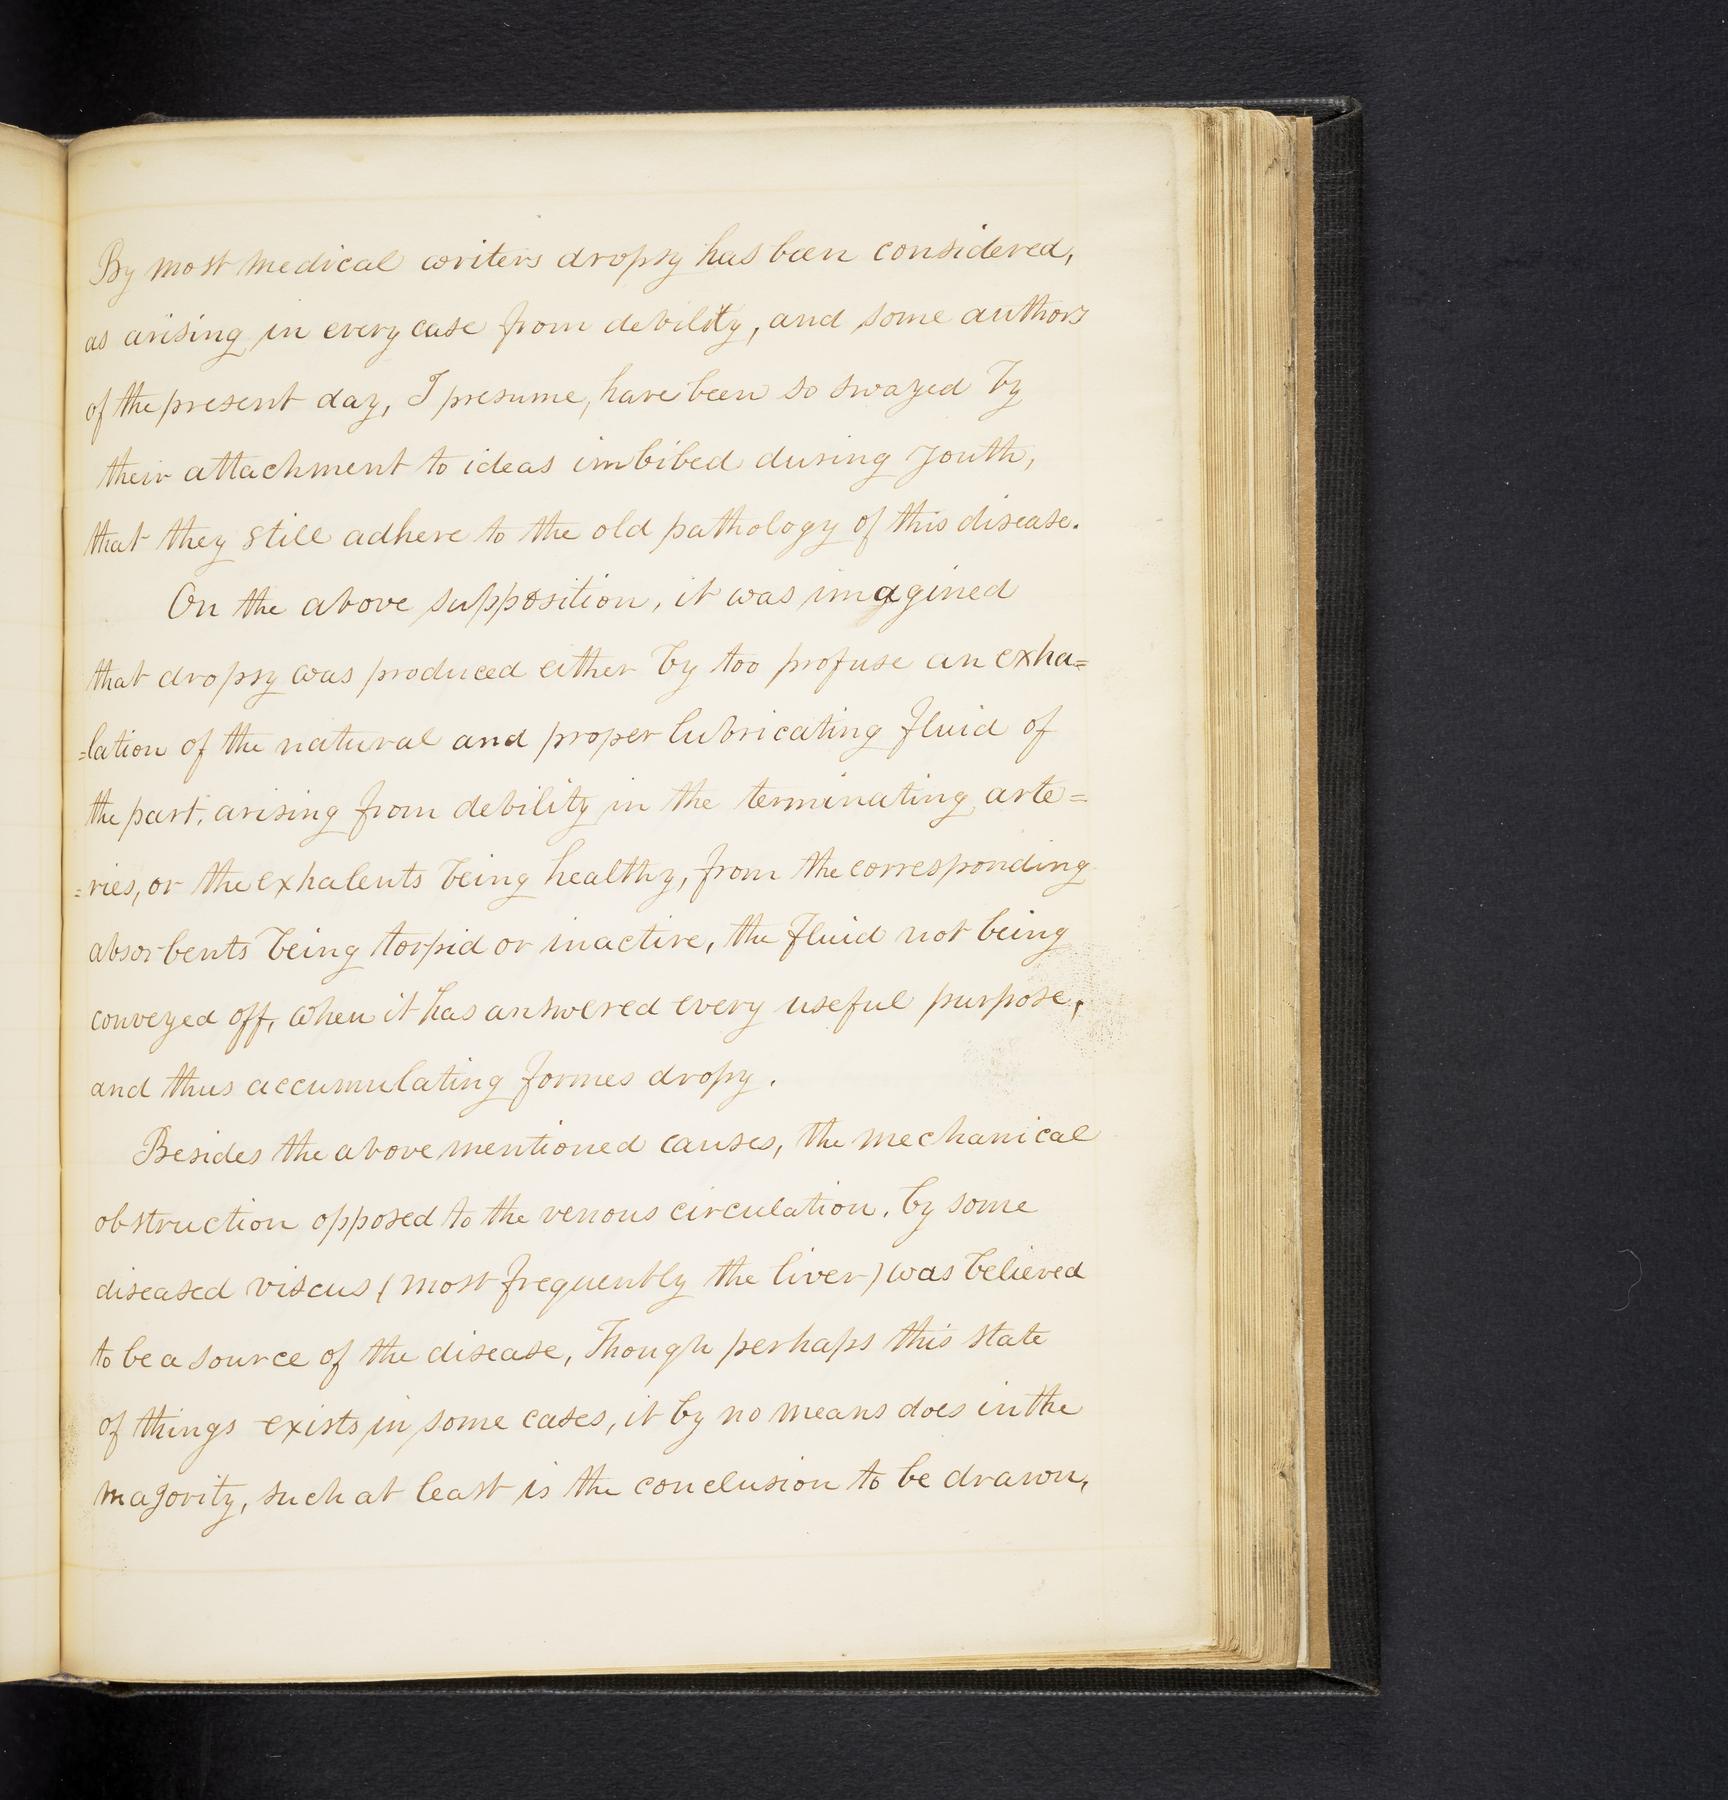 By most medical writers dropsy has been considered,
as arising in every case from debility, and some authors
of the present day, I presume, have been so swayed by
their attachment to ideas imbibed during youth,
that they still adhere to the old pathology of this disease.
On the above supposition, it was imagined
that dropsy was produced either by too profuse an exha=
=lation of the natural and proper lubricating fluid of
the part, arising from debility in the terminating arte=
=ries, or the exhalents being healthy, from the corresponding
absorbents being torpid or inactive, the fluid not being
conveyed off, when it has answered every useful purpose,
and thus accumulating formes dropy.
Besides the above mentioned causes, the mechanical
obstruction opposed to the venous circulation, by some
diseased viscus (most frequently the liver) was believed
to be a source of the disease, Though perhaps this state
of things exists in some cases, it by no means does in the
majority, such at least is the conclusion to be drawn,